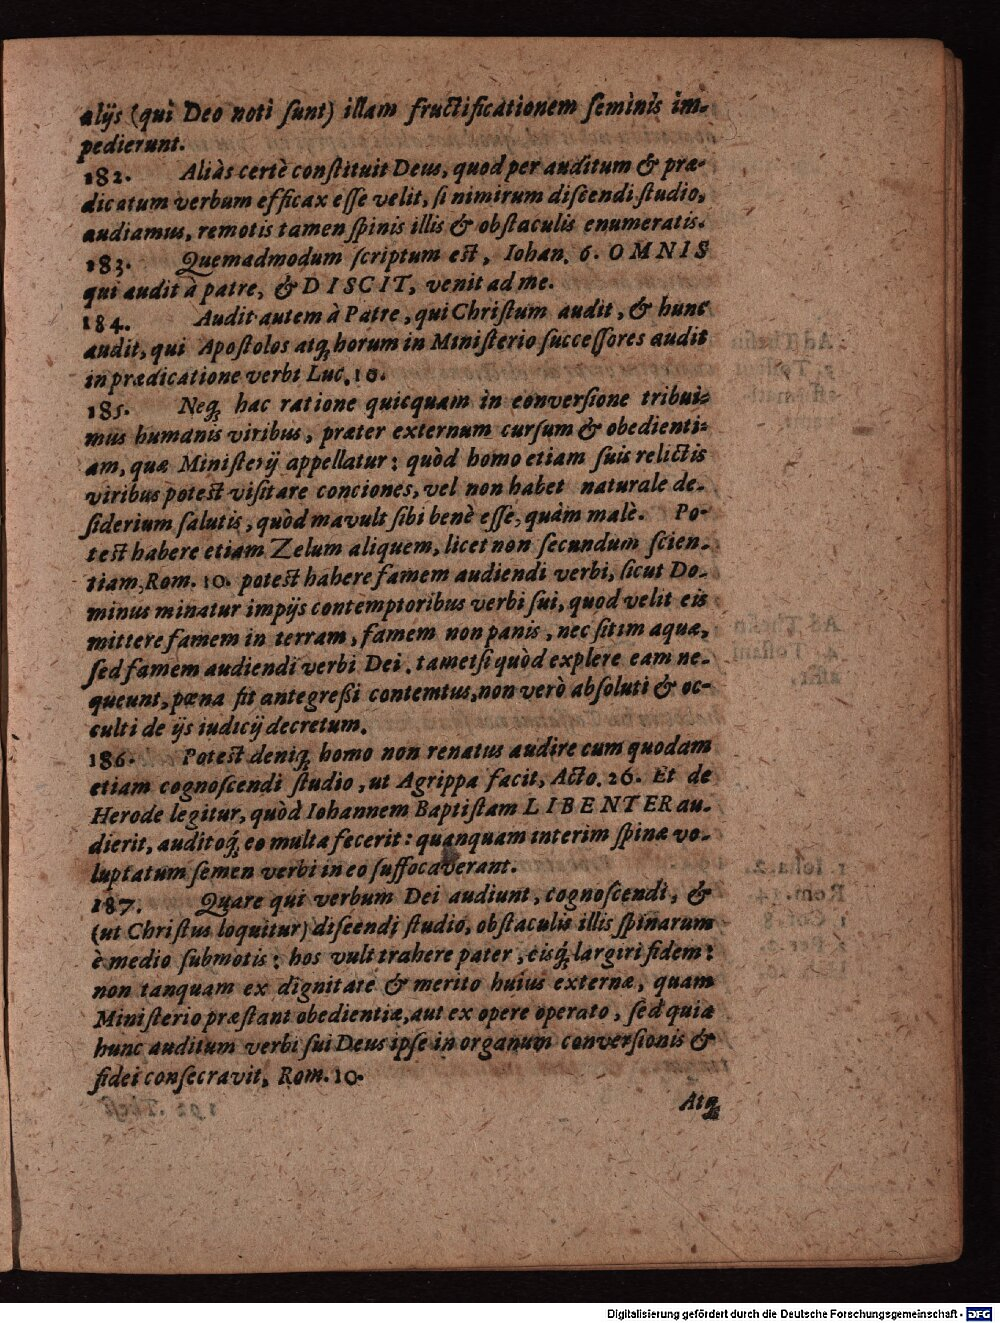 alijs (qui Deo noti sunt) illam fructificationem seminis im-
pedierunt.
182. Aliàs certè constituit Deus, quod per auditum & præ-
dicatum verbum efficax esse velit, si nimirum discendi studio,
audiamus, remotis tamen spinis illis & obstaculis enumeratis.
183. Quemadmodum scriptum est, Iohan. 6. OMNIS
qui audit à patre, & DISCIT, venit ad me.
184. Audit autem à Patre, qui Christum audit, & hunc
audit, qui Apostolos atq; horum in Ministerio successores audit
in prædicatione verbi Luc. 10.
185. Neq; hac ratione quicquam in conversione tribui-
mus humanis viribus, præter externum cursum & obedienti-
am, quæ Ministerij appellatur: quòd homo etiam suis relictis
viribus potest visitare conciones, vel non habet naturale de-
siderium salutis, quòd mavult sibi benè esse, quàm malè. Po-
test habere etiam Zelum aliquem, licet non secundum scien-
tiam, Rom. 10. potest habere famem audiendi verbi, sicut Do-
minus minatur impijs contemptoribus verbi sui, quod velit eis
mittere famem in terram, famem non panis, nec sitim aquæ,
sed famem audiendi verbi Dei. tametsi quòd explere eam ne-
queunt, pœna sit antegreßi contemtus, non verò absoluti & oc-
culti de ijs iudicij decretum.
186. Potest deniq; homo non renatus audire cum quodam
etiam cognoscendi studio, ut Agrippa facit, Acto. 26. Et de
Herode legitur, quòd Iohannem Baptistam LIBENTER au-
dierit, auditoq; eo multa fecerit: quanquam interim spinæ vo-
luptatum semen verbi in eo suffocaverant.
187. Quare qui verbum Dei audiunt, cognoscendi, &
(ut Christus loquitur) discendi studio, obstaculis illis spinarum
è medio submotis: hos vult trahere pater, eisq; largiri fidem:
non tanquam ex dignitate & merito huius externæ, quam
Ministerio præstant obedientiæ, aut ex opere operato, sed quia
hunc auditum verbi sui Deus ipse in organum conversionis &
fidei consecravit, Rom. 10.
Atq;
Digitalisierung gefördert durch die Deutsche Forschungsgemeinschaft - DFG